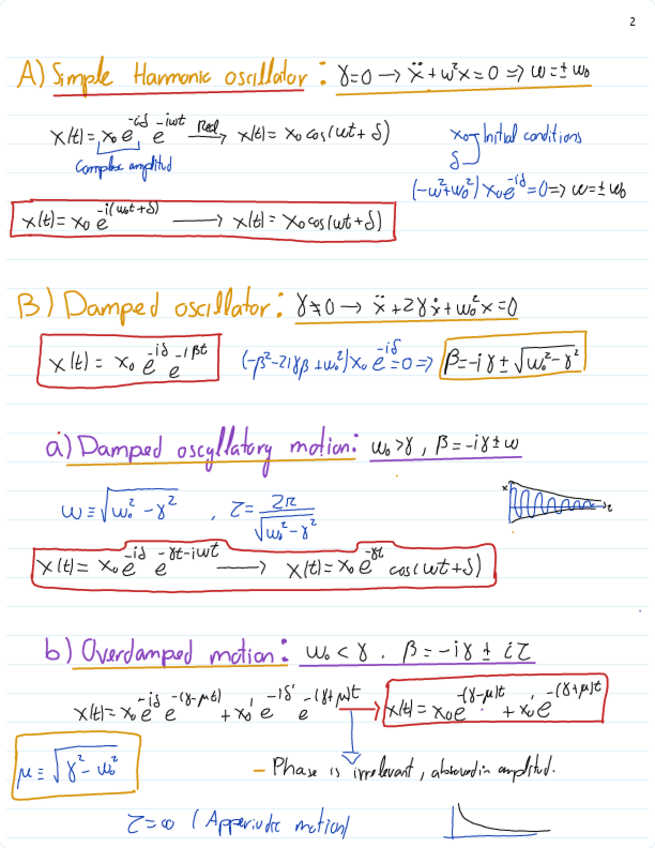 2
A) Simple Harmonic oscillator : γ=0 → ẍ+ω²x=0 ⇒ ω=±ω₀
x(t)=x₀e^(-iδ) e^(-iωt) Real→ x(t)=x₀cos(ωt+δ)
x₀, δ Initial conditions
Complex amplitud
(-ω²+ω₀²)x₀e^(-iδ)=0 ⇒ ω=±ω₀
x(t)=x₀e^(-i(ω₀t+δ)) → x(t)=x₀cos(ωt+δ)
B) Damped oscillator : γ≠0 → ẍ+2γẋ+ω₀²x=0
x(t)=x₀e^(-iδ)e^(-iβt) (-β²-2iγβ+ω₀²)x₀e^(-iδ)=0 ⇒ β=-iγ±√(ω₀²-γ²)
a) Damped oscyllatory motion: ω₀>γ , β=-iγ±ω
x
t
ω≡√(ω₀²-γ²) , τ=2π/√(ω₀²-γ²)
x(t)=x₀e^(-iδ)e^(-γt-iωt) → x(t)=x₀e^(-γt)cos(ωt+δ)
b) Overdamped motion: ω₀<γ . β=-iγ±iτ
x(t)=x₀e^(-iδ)e^(-(γ-μt)) + x₀'e^(-iδ')e^(-(γ+μ)t) → x(t)=x₀e^(-(γ-μ)t) + x₀'e^(-(γ+μ)t)
μ≡√(γ²-ω₀²)
- Phase is irrelevant, in amplitud.
τ=∞ (Apperiodic motion)